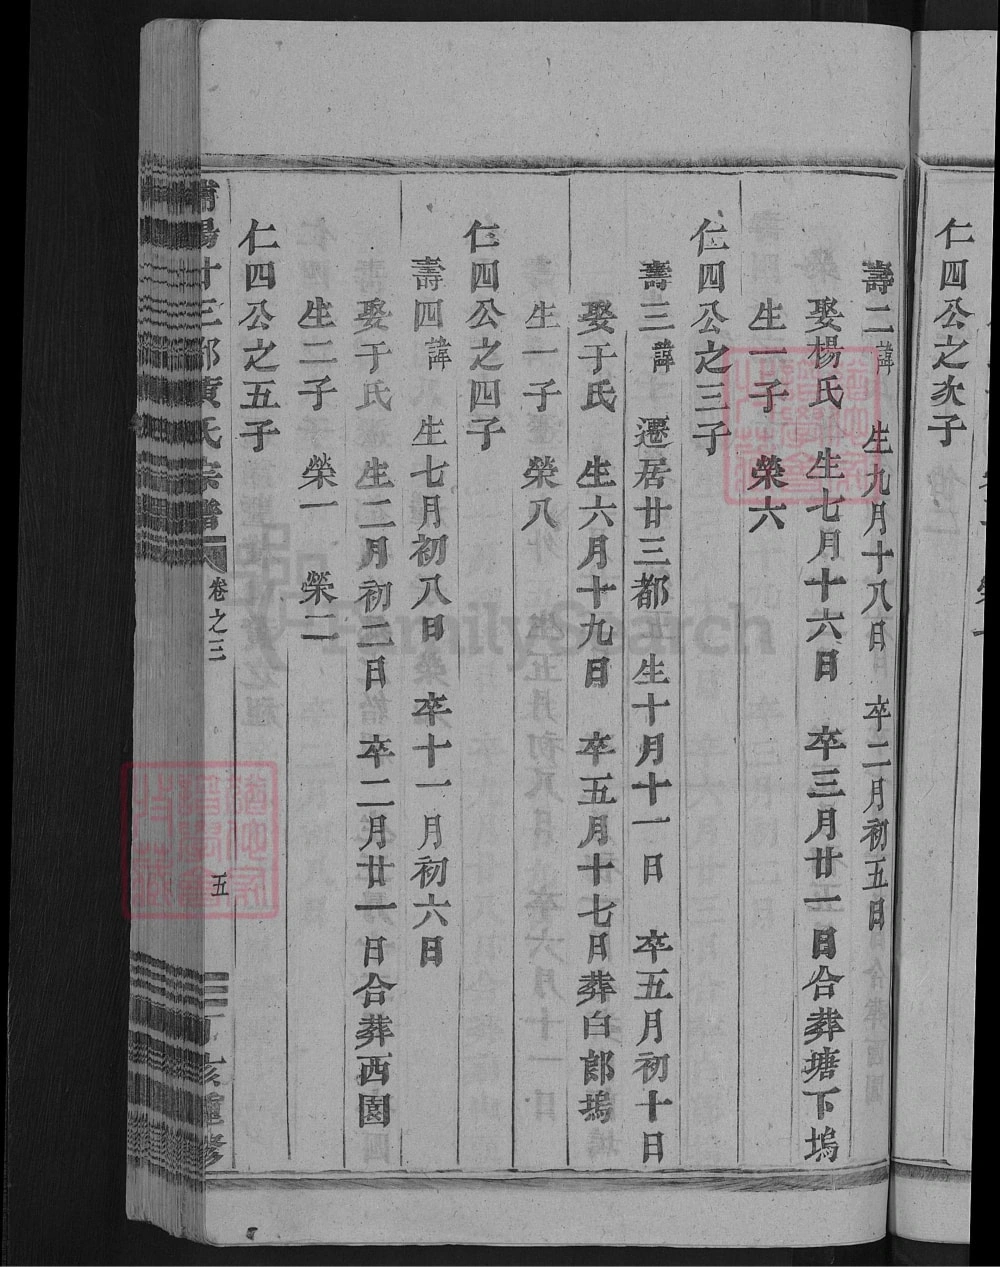 仁四公之次子
壽二諱 生九月十八日 卒二月初五日
娶楊氏 生七月十六日 卒三月廿一日合葬塘下塢
生一子 榮六
仁四公之三子
壽三諱 遷居廿三都 生十月十一日 卒五月初十日
娶于氏 生六月十九日 卒五月十七日葬白郎塢
生一子 榮八
仁四公之四子
壽四諱 生七月初八日 卒十一月初六日
娶于氏 生二月初二日 卒二月廿一日合葬西園
生二子 榮一 榮二
仁四公之五子
陽十三都黄氏宗譜 卷之三 五 丁亥重修
FamilySearch